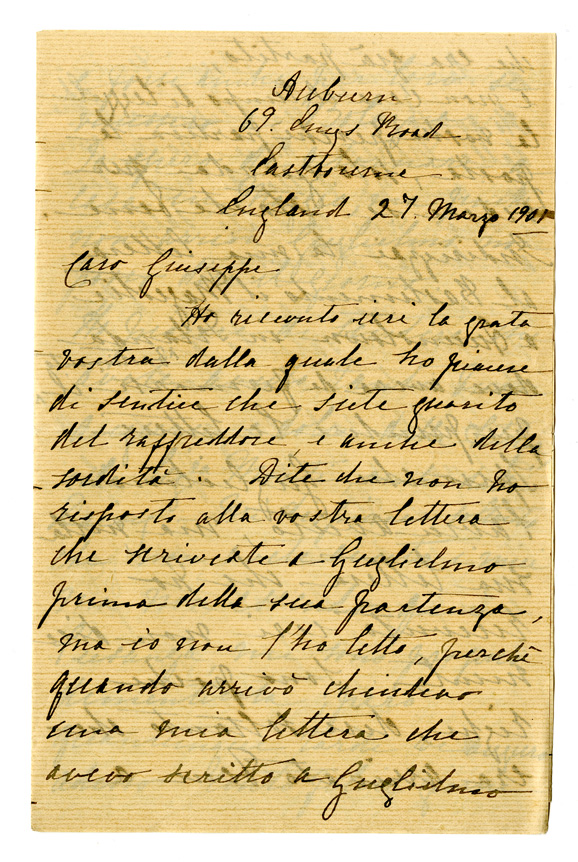 Auburn
69. Enys Road
Eastbourne
England 27. Marzo 1901
Caro Giuseppe
Ho ricevuto ieri la grata
vostra dalla quale ho piacere
di sentire che siete guarito
del raffreddore, e anche della
sordità. Dite che non ho
risposto alla vostra lettera
che scriveste a Guglielmo
prima della sua partenza,
ma io non l'ho letto, perchè
quando arrivò chiudevo
una mia lettera che
avevo scritto a Guglielmo